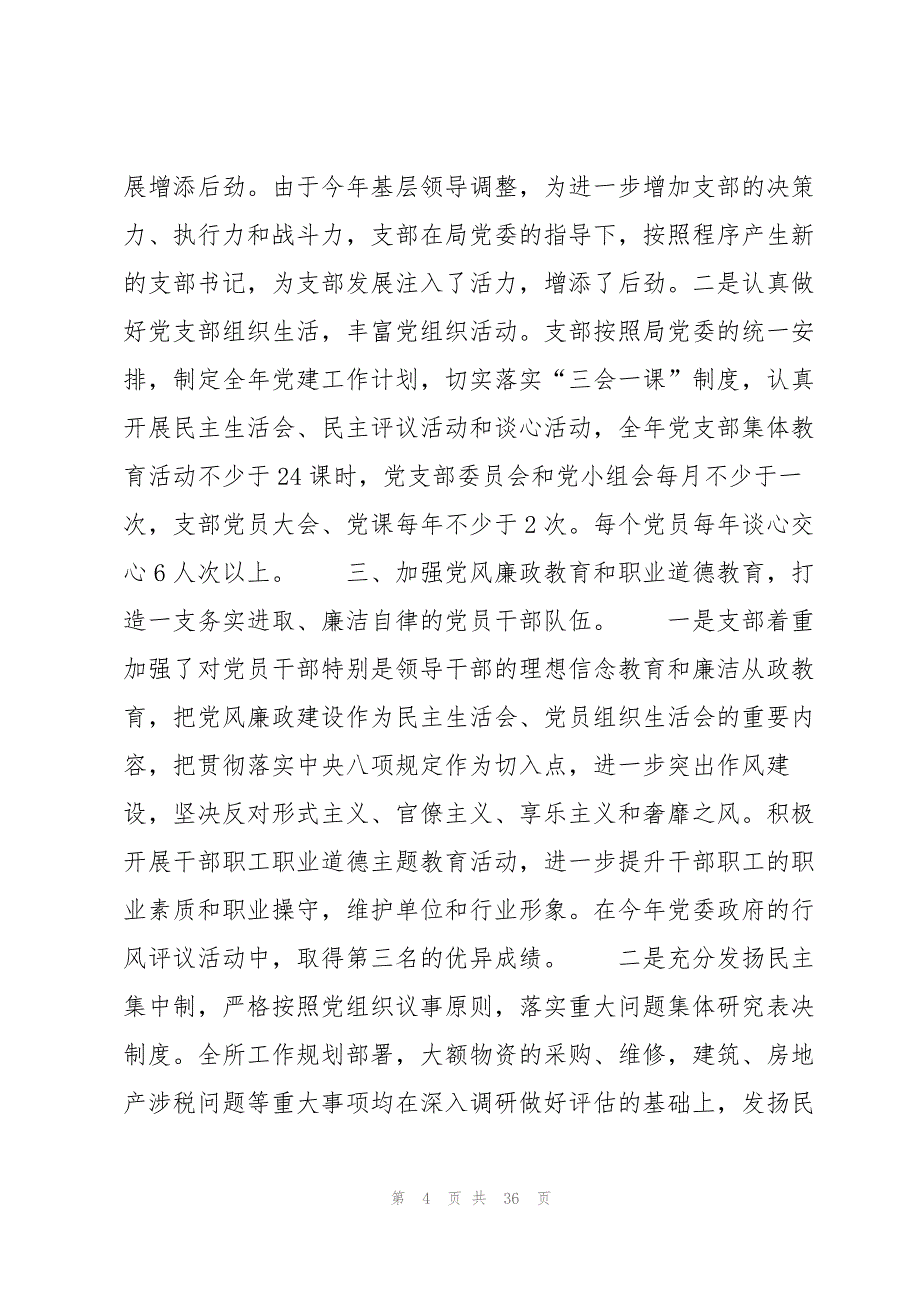 展增添后劲。由于今年基层领导调整，为进一步增加支部的决策
力、执行力和战斗力，支部在局党委的指导下，按照程序产生新
的支部书记，为支部发展注入了活力，增添了后劲。二是认真做
好党支部组织生活，丰富党组织活动。支部按照局党委的统一安
排，制定全年党建工作计划，切实落实“三会一课”制度，认真
开展民主生活会、民主评议活动和谈心活动，全年党支部集体教
育活动不少于 24 课时，党支部委员会和党小组会每月不少于一
次，支部党员大会、党课每年不少于 2 次。每个党员每年谈心交
心 6 人次以上。　　三、加强党风廉政教育和职业道德教育，打
造一支务实进取、廉洁自律的党员干部队伍。　　一是支部着重
加强了对党员干部特别是领导干部的理想信念教育和廉洁从政教
育，把党风廉政建设作为民主生活会、党员组织生活会的重要内
容，把贯彻落实中央八项规定作为切入点，进一步突出作风建
设，坚决反对形式主义、官僚主义、享乐主义和奢靡之风。积极
开展干部职工职业道德主题教育活动，进一步提升干部职工的职
业素质和职业操守，维护单位和行业形象。在今年党委政府的行
风评议活动中，取得第三名的优异成绩。　　二是充分发扬民主
集中制，严格按照党组织议事原则，落实重大问题集体研究表决
制度。全所工作规划部署，大额物资的采购、维修，建筑、房地
产涉税问题等重大事项均在深入调研做好评估的基础上，发扬民
第 4 页 共 36 页